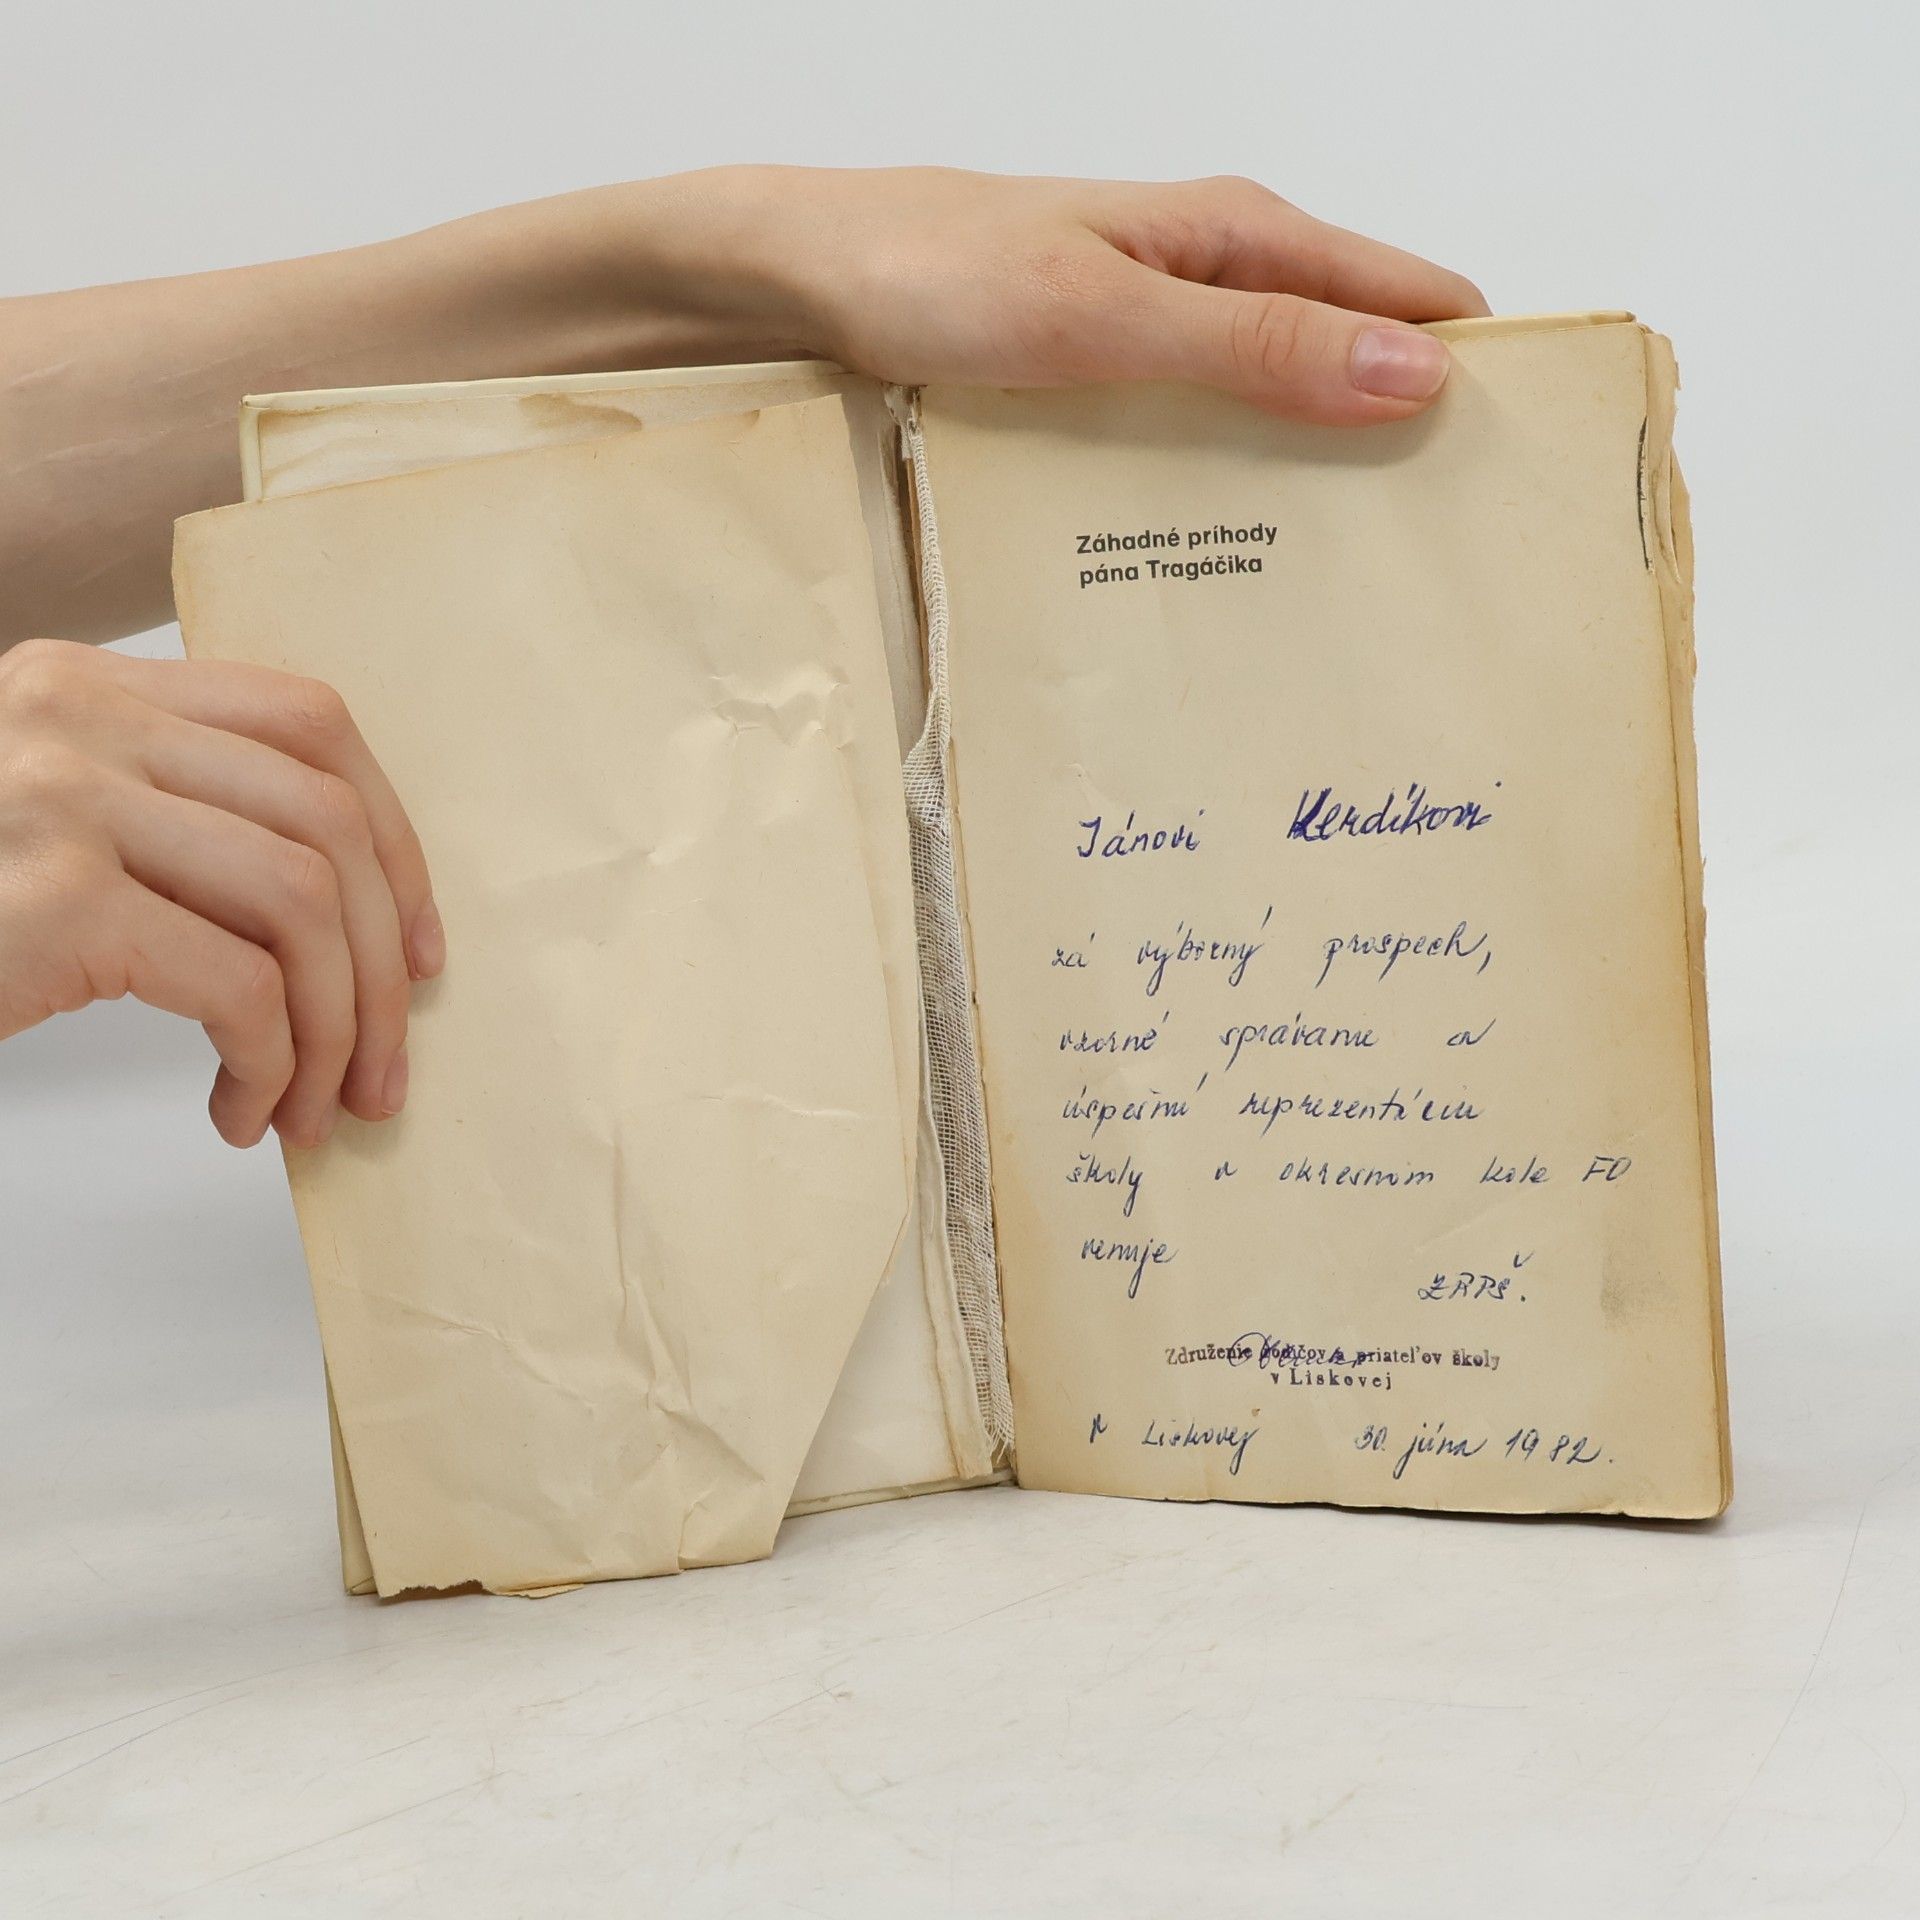 Záhadné príhody
pána Tragáčika
Jánovi Kerdíkovi
zá výborný prospech,
vzorné správanie a
úspešnú reprezentáciu
školy v okresnom kole FO
venuje
ZRPŠ.
Združenie rodičov a priateľov školy
v Liskovej
V Liskovej 30. júna 1982.